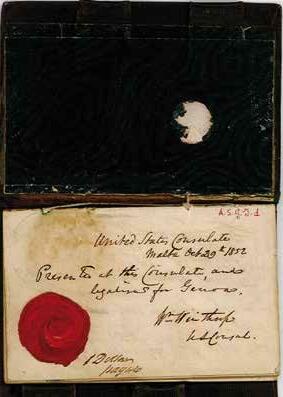 United States Consulate
Malta Oct 29th 1852
Presented at this Consulate, and
legalised for Genoa.
Wm Winthrop
US Consul.
1 Dollar